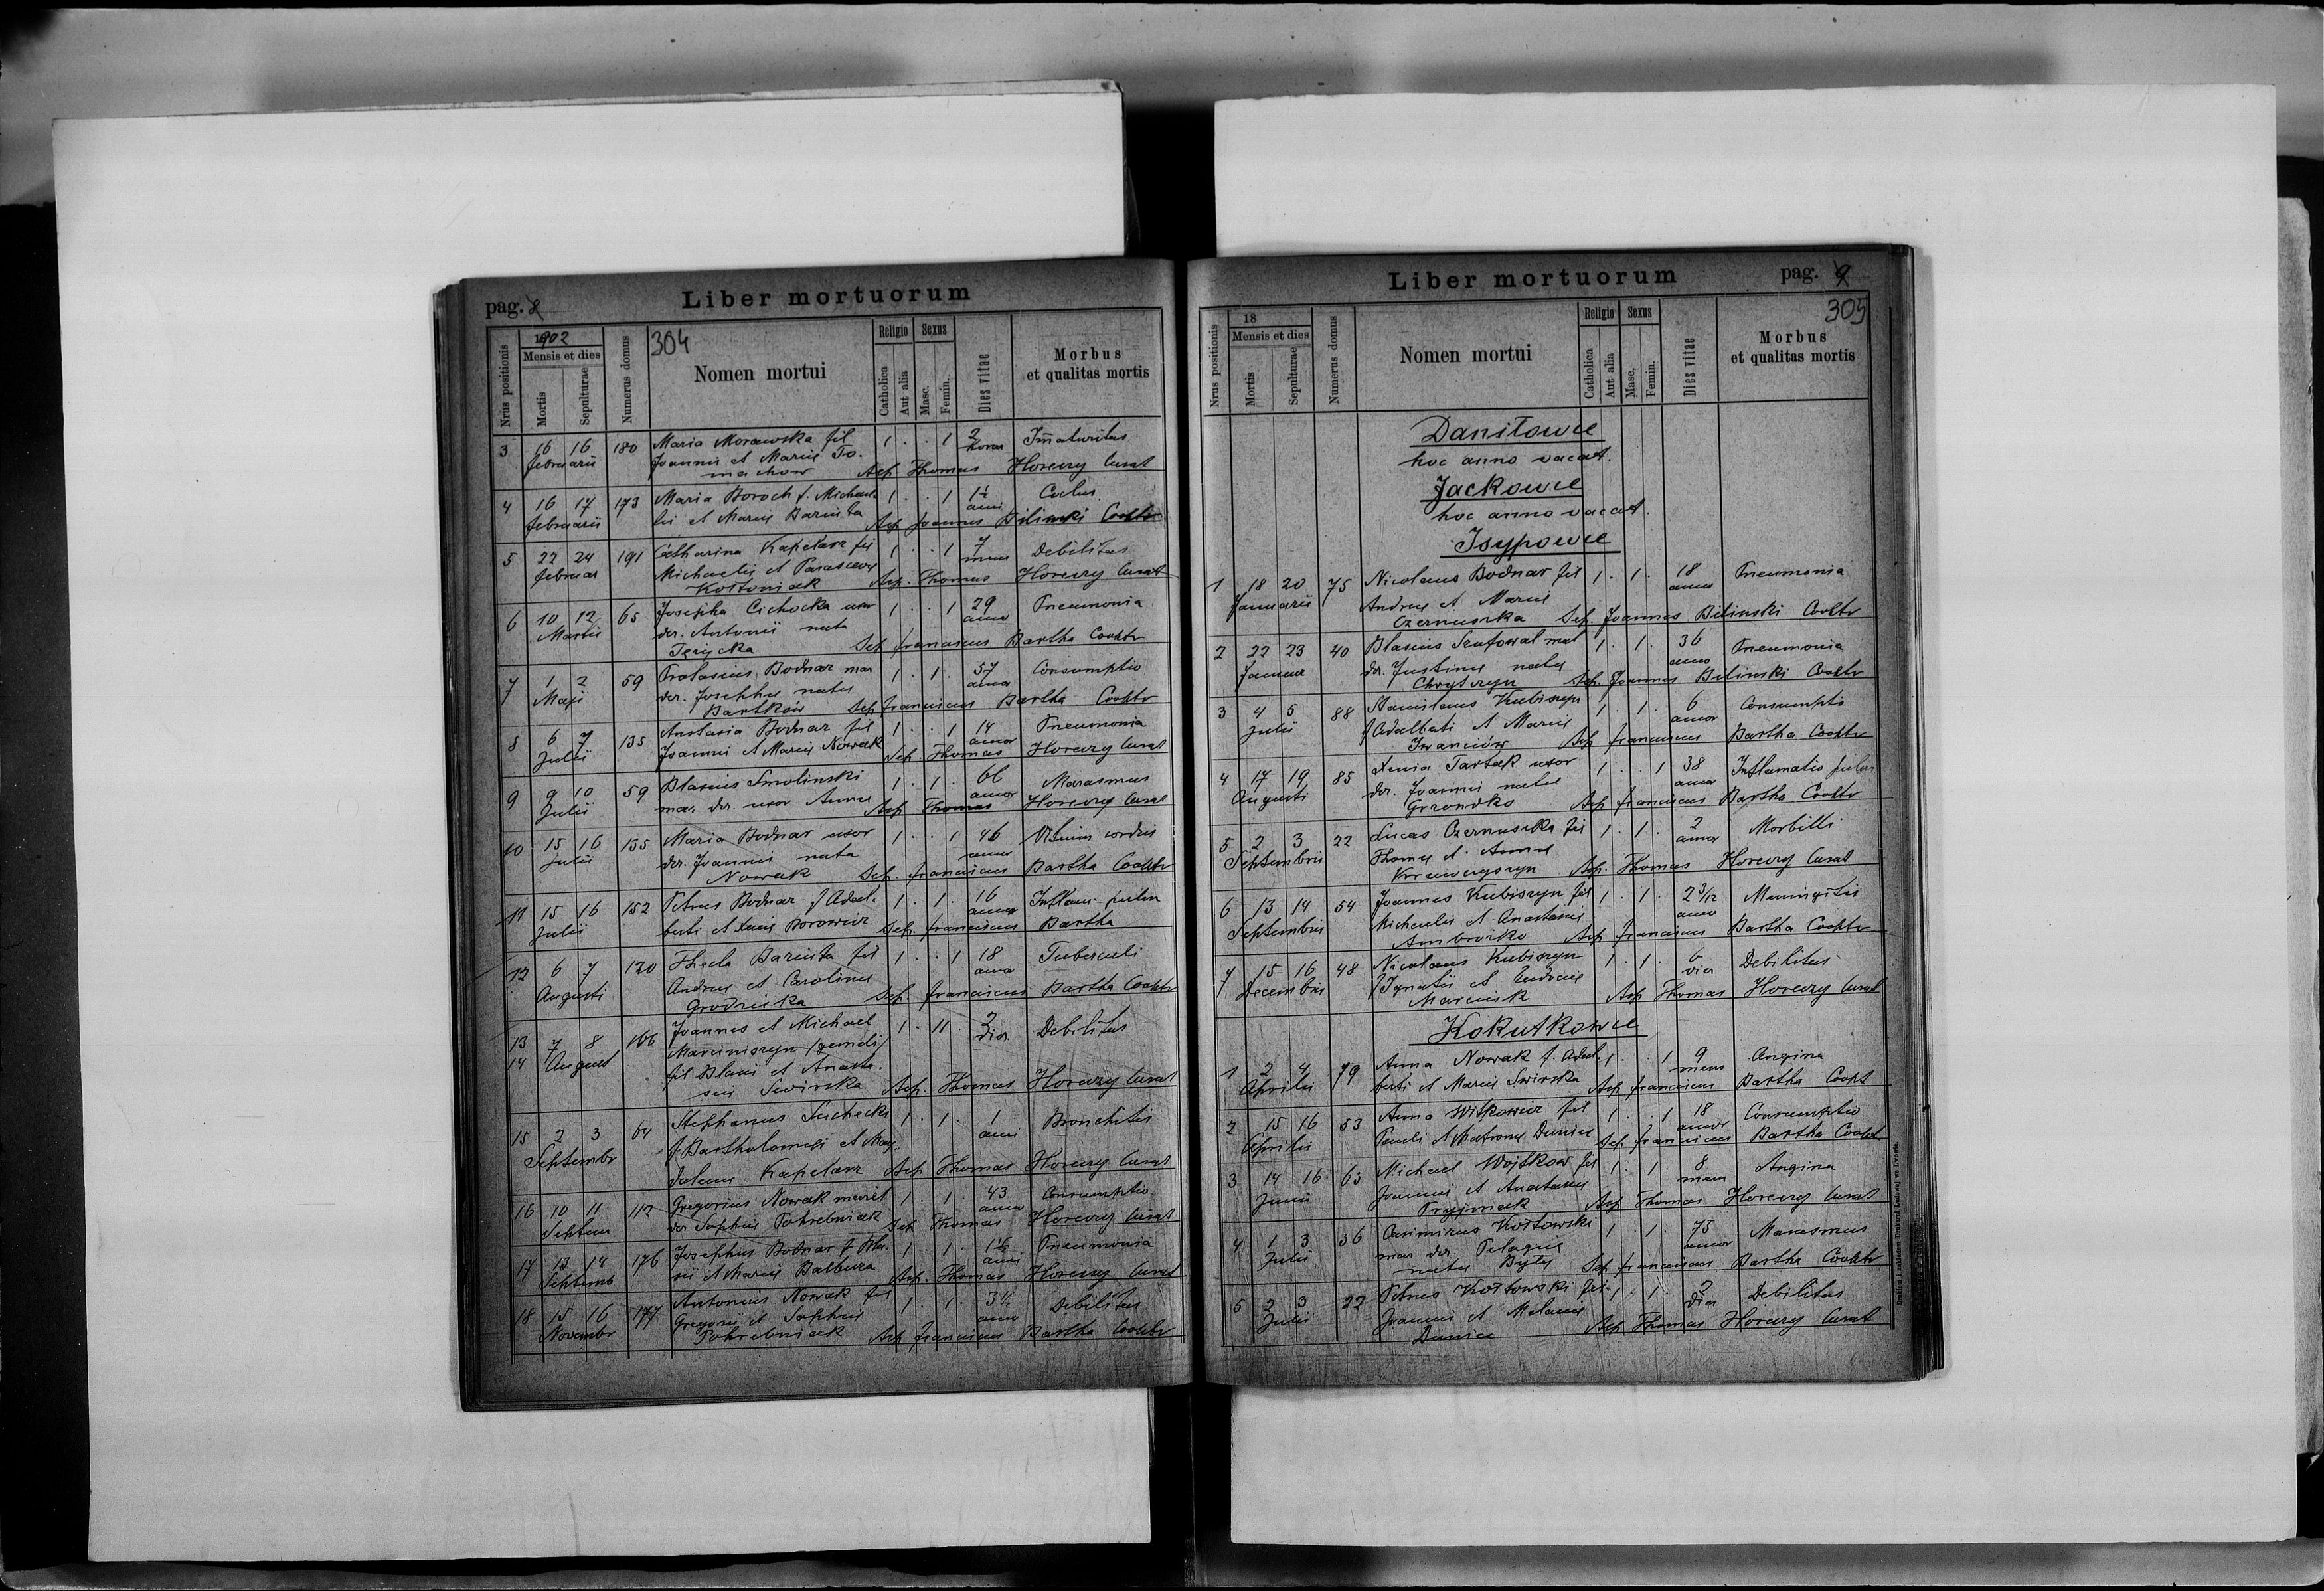 pag. 8
Liber mortuorum
304
Nrus positionis
1902
Mensis et dies
Mortis
Sepulturae
Numerus domus
Nomen mortui
Religio
Catholica
Aut alia
Sexus
Masc.
Femin.
Dies vitae
Morbus
et qualitas mortis
3 16 16 180 Maria Morawska fil 1 . . 1 2 Imaturitas
februarii Joannis et Mariae To- horas
machow Sep Thomas Horeczy Curat
4 16 17 173 Maria Boroch f. Michae- 1 . . 1 1½ Coclus
februarii lis et Mariae Baziuta anni
Sep Joannes Bilinski Cooptr
5 22 24 191 Catharina Kapelarz fil 1 . . 1 7 Debilitas
februar Michaelis et Parascevae mens
Kostoniak Sep. Thomas Horeczy Curat
6 10 12 65 Josepha Cichocka uxor 1 . . 1 29 Pneumonia
Martii der. Antonii nata annor
Sep franciscus Bartha Cooptr
7 1 2 59 Protasius Bodnar mar 1 . 1 . 57 Consumptio
Maji der. Josephae natae annor
Bartków Sep franciscus Bartha Cooptr
8 6 7 135 Anstasia Bodnar fil 1 . . 1 14 Pneumonia
Julii Joannis et Mariae Nowak annor
Sep. Thomas Horeczy Curat
9 9 10 59 Blasius Smolinski 1 . 1 . 66 Marasmus
Julii mar. der. uxor Annae annor
Sep Thomas Horeczy Curat
10 15 16 135 Maria Bodnar uxor 1 . . 1 46 Vitium cordis
Julii der. Joannis nata annor
Nowak Sep. franciscus Bartha Cooptr
11 15 16 152 Petrus Bodnar f Adal- 1 . 1 . 16 Inflam. pulm
Julii berti et Xeniae Borowicz annor
Sep. franciscus Bartha
12 6 7 120 Thecla Baziuta fil 1 . . 1 18 Tuberculi
Augusti Andreae et Carolinae anno
Grodziska Sep. franciscus Bartha Cooptr
13 7 8 166 Joannes et Michael 1 . 11 . 2 Debilitas
14 August Marciniszyn /gemeli/ dier.
fil Blasii et Anasta-
siae Swirska Sep. Thomas Horeczy Curat
15 2 3 64 Stephanus Suchecki 1 . 1 . 1 Bronchitis
Septembr f. Bartholomaei et Mag- anni
dalenae Kapelarz Sep Thomas Horeczy Curat
16 10 11 112 Gregorius Nowak marit 1 . 1 . 43 Consumptio
Septem der Sophiae Pohrebniak annor
Sep Thomas Horeczy Curat
17 13 14 176 Josephus Bodnar f Bla- 1 . 1 . Pneumonia
Septemb sii et Mariae Balbuza anni
Sep. Thomas Horeczy Curat
18 15 16 177 Antonius Nowak fil 1 . 1 . 3½ Debilitas
Novembr Gregorii et Sophiae anno
Pohrebniak Sep franciscus Bartha Cooptr
Liber mortuorum
pag. 9
305
Nrus positionis
18
Mensis et dies
Mortis
Sepulturae
Numerus domus
Nomen mortui
Religio
Catholica
Aut alia
Sexus
Masc.
Femin.
Dies vitae
Morbus
et qualitas mortis
Daniłowce
hoc anno vacat.
Jackowce
hoc anno vacat.
Isypowce
1 18 20 75 Nicolaus Bodnar fil 1 . 1 . 18 Pneumonia
Januarii Andreae et Mariae annor
Czernuszka Sep. Joannes Bilinski Cooptr
2 22 23 40 Blasius Szafowal mat 1 . 1 . 36 Pneumonia
Januar der. Justinae natae anno
Chrytszyn Sep. Joannes Bilinski Cooptr
3 4 5 88 Stanislaus Kubiszyn 1 . 1 . 6 Consumptio
Julii f Adalberti et Mariae annor
Iwanciów Sep franciscus Bartha Cooptr
4 17 19 85 Xenia Tartak uxor 1 . . 1 38 Inflamatio pulm
Augusti der. Joannis natae annor
Grzondko Sep franciscus Bartha Cooptr
5 2 3 22 Lucas Czernuszka fil 1 . 1 . 2 Morbilli
Septembris Thomae et Annae annor
Krawczyszyn Sep. Thomas Horeczy Curat
6 13 14 54 Joannes Kubiszyn fil 1 . 1 . 2 3/12 Meningitis
Septembris Michaelis et Anastasiae anno
Ambrozko Sep franciscus Bartha Cooptr
7 15 16 48 Nicolaus Kubiszyn 1 . 1 . 6 Debilitas
Decembris f Ignatii et Eudociae dier
Marciuk Sep Thomas Horeczy Curat
Kokutkowce
1 2 4 79 Anna Nowak f. Adal- 1 . . 1 9 Angina
Aprilis berti et Mariae Swirska mens
Sep franciscus Bartha Coopt
2 15 16 53 Anna Witkowicz fil 1 . . 1 18 Consumptio
Aprilis Pauli et Matronae Duniec annor
Sep franciscus Bartha Coopt
3 14 16 63 Michael Wojtkow fil 1 . 1 . 8 Angina
Junii Joannis et Anastasiae mens
Pryjmak Sep Thomas Horeczy Curat
4 1 3 36 Casimirus Kostowski 1 . 1 . 73 Marasmus
Julii mar der. Pelagiae annor
natae Byty Sep franciscus Bartha Cooptr
5 2 3 22 Petrus Kostowski fil. 1 . 1 . 2 Debilitas
Julii Joannis et Melaniae dier
Duniec Sep Thomas Horeczy Curat